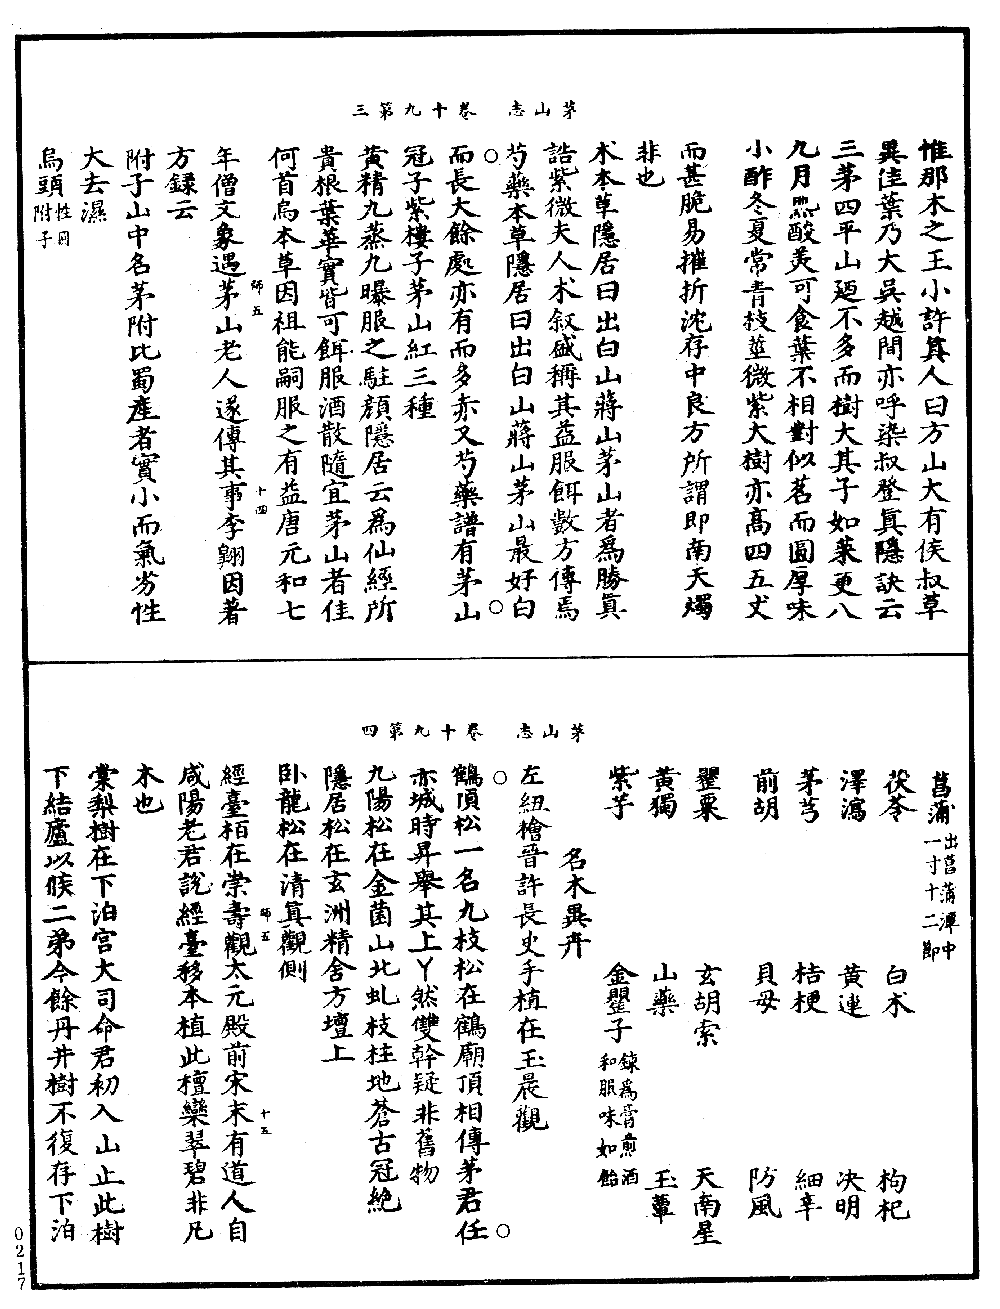 茅山志　卷十九第三
惟那木之王小許真人曰方山大有侯叔草
異佳葉乃大吳越間亦呼染叔登真隱訣云
三茅四平山廼不多而樹大其子如茱更八
九月熟酸美可食葉不相對似茗而圓厚味
小酢冬夏常青枝莖微紫大樹亦高四五丈
而甚脆易摧折沈存中良方所謂即南天燭
非也
朮本草隱居曰出白山蔣山茅山者為勝真
誥紫微夫人朮叙盛稱其益服餌數方傳焉
芍藥本草隱居曰出白山蔣山茅山最好白
而長大餘處亦有而多赤又芍藥譜有茅山
冠子紫樓子茅山紅三種
黃精九蒸九曝服之駐顏隱居云為仙經所
貴根葉華實皆可餌服酒散隨宜茅山者佳
何首烏本草因祖能嗣服之有益唐元和七
師五　十四
年僧文象遇茅山老人遂傳其事李翱因著
方錄云
附子山中名茅附比蜀產者實小而氣劣性
大去濕
烏頭性同附子
茅山志　卷十九第四
菖蒲出菖蒲潭中一寸十二節
茯苓　白朮　枸杞
澤瀉　黃連　決明
茅芎　桔梗　細辛
前胡　貝母　防風
罌粟　玄胡索　天南星
黃獨　山藥　玉蕈
紫芋　金罌子鍊為膏煎酒和服味如飴
名木異卉
左紐檜晉許長史手植在玉晨觀
鶴頂松一名九枝松在鶴廟頂相傳茅君任
赤城時昇舉其上丫然雙幹疑非舊物
九陽松在金菌山北虬枝柱地蒼古冠絶
隱居松在玄洲精舍方壇上
卧龍松在清真觀側
師五　十五
經臺栢在崇壽觀太元殿前宋末有道人自
咸陽老君說經臺移本植此檀欒翠碧非凡
木也
棠梨樹在下泊宮大司命君初入山止此樹
下結廬以候二弟今餘丹井樹不復存下泊
0217